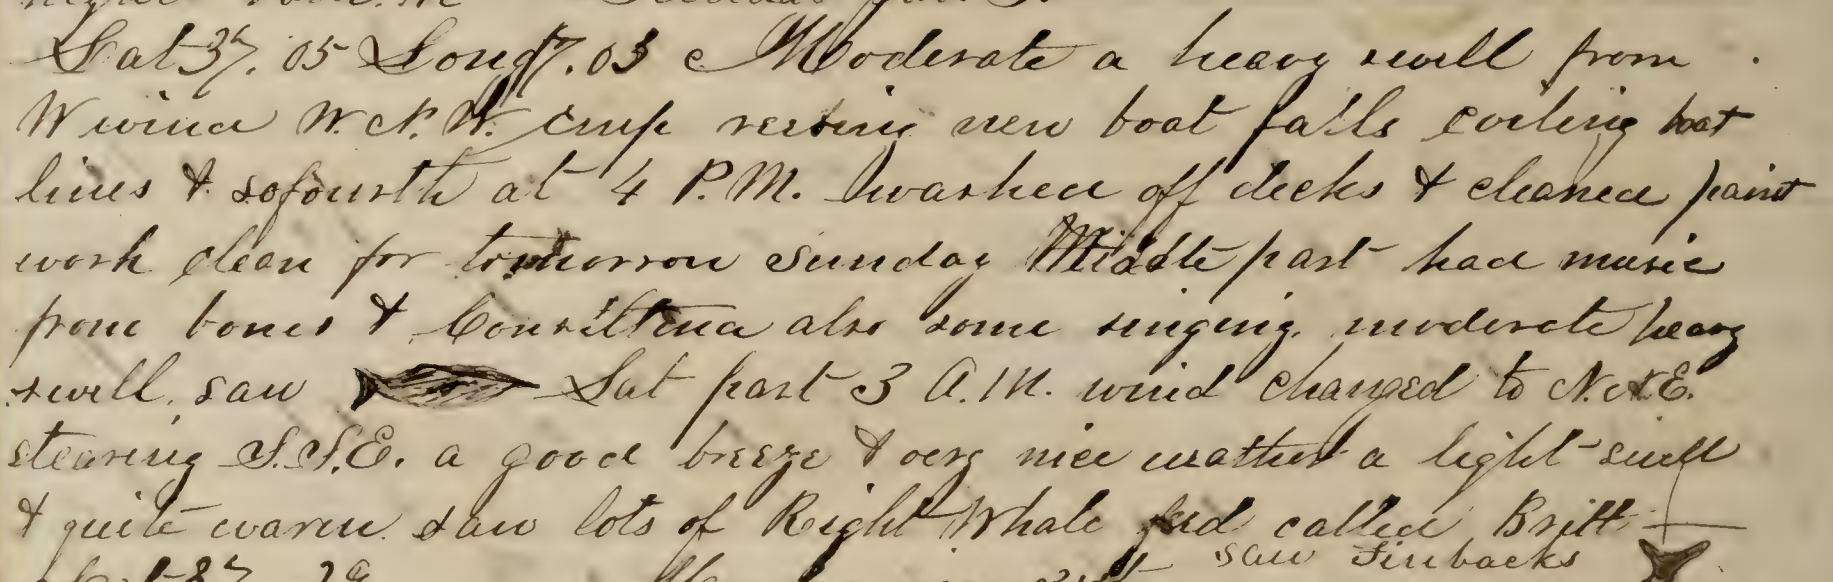 Lat 37.05 Long 7.03 Moderate a heavy swell from
W wind W.N.W. Emp resting new boat falls coiling boat
lines & sofourth at 4 P.M. washed off decks & cleaned paint
work clean for tomorrow Sunday Middle part had music
from bones & also some singing. moderate heavy
swell, saw Lat part 3 A.M. wind changed to N.N.E.
stearing S.S.E. a good breeze & very nice weather a light swell
& quite warm. saw lots of Right Whale feed called Britt
saw Finbacks